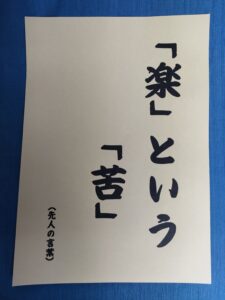 「楽」という
「苦」
（先人の言葉）